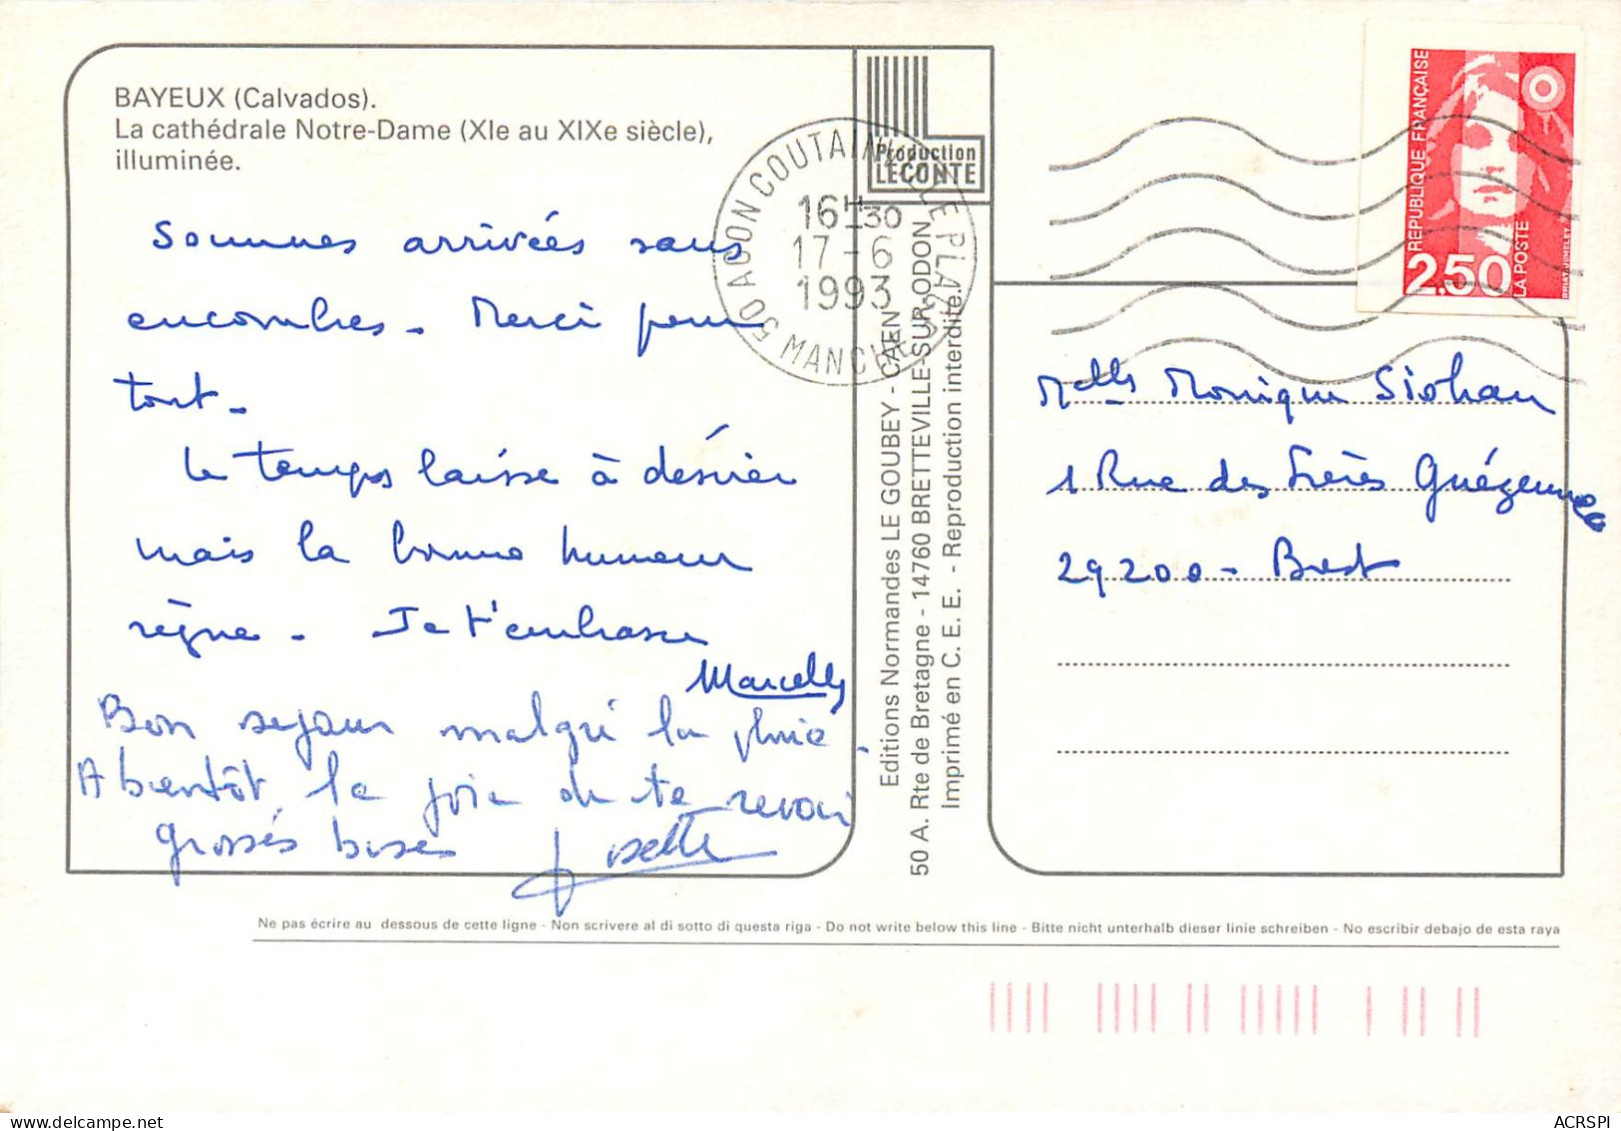 BAYEUX (Calvados).
La cathédrale Notre-Dame (XIe au XIXe siècle),
illuminée.
Sommes arrivées sans
encombres - Merci pour
tout -
Le temps laisse à désirer
mais la bonne humeur
règne - Je t'embrasse
Marcelly
Bon sejour malgré la pluie -
A bientôt, la joie de te revoir
grosses bises Josette
Production
LECONTE
50 AGON COUTAINVILLE PLAGE
MANCHE
16H30
17-6
1993
Editions Normandes LE GOUBEY - CAEN
50 A. Rte de Bretagne - 14760 BRETTEVILLE-SUR-ODON
Imprimé en C. E. E. - Reproduction interdite.
REPUBLIQUE FRANÇAISE
2,50
LA POSTE
Melle Monique Siohan
1 Rue des Frères Guézennec
29200 - Brest
Ne pas écrire au dessous de cette ligne - Non scrivere al di sotto di questa riga - Do not write below this line - Bitte nicht unterhalb dieser linie schreiben - No escribir debajo de esta raya
ACRSPI